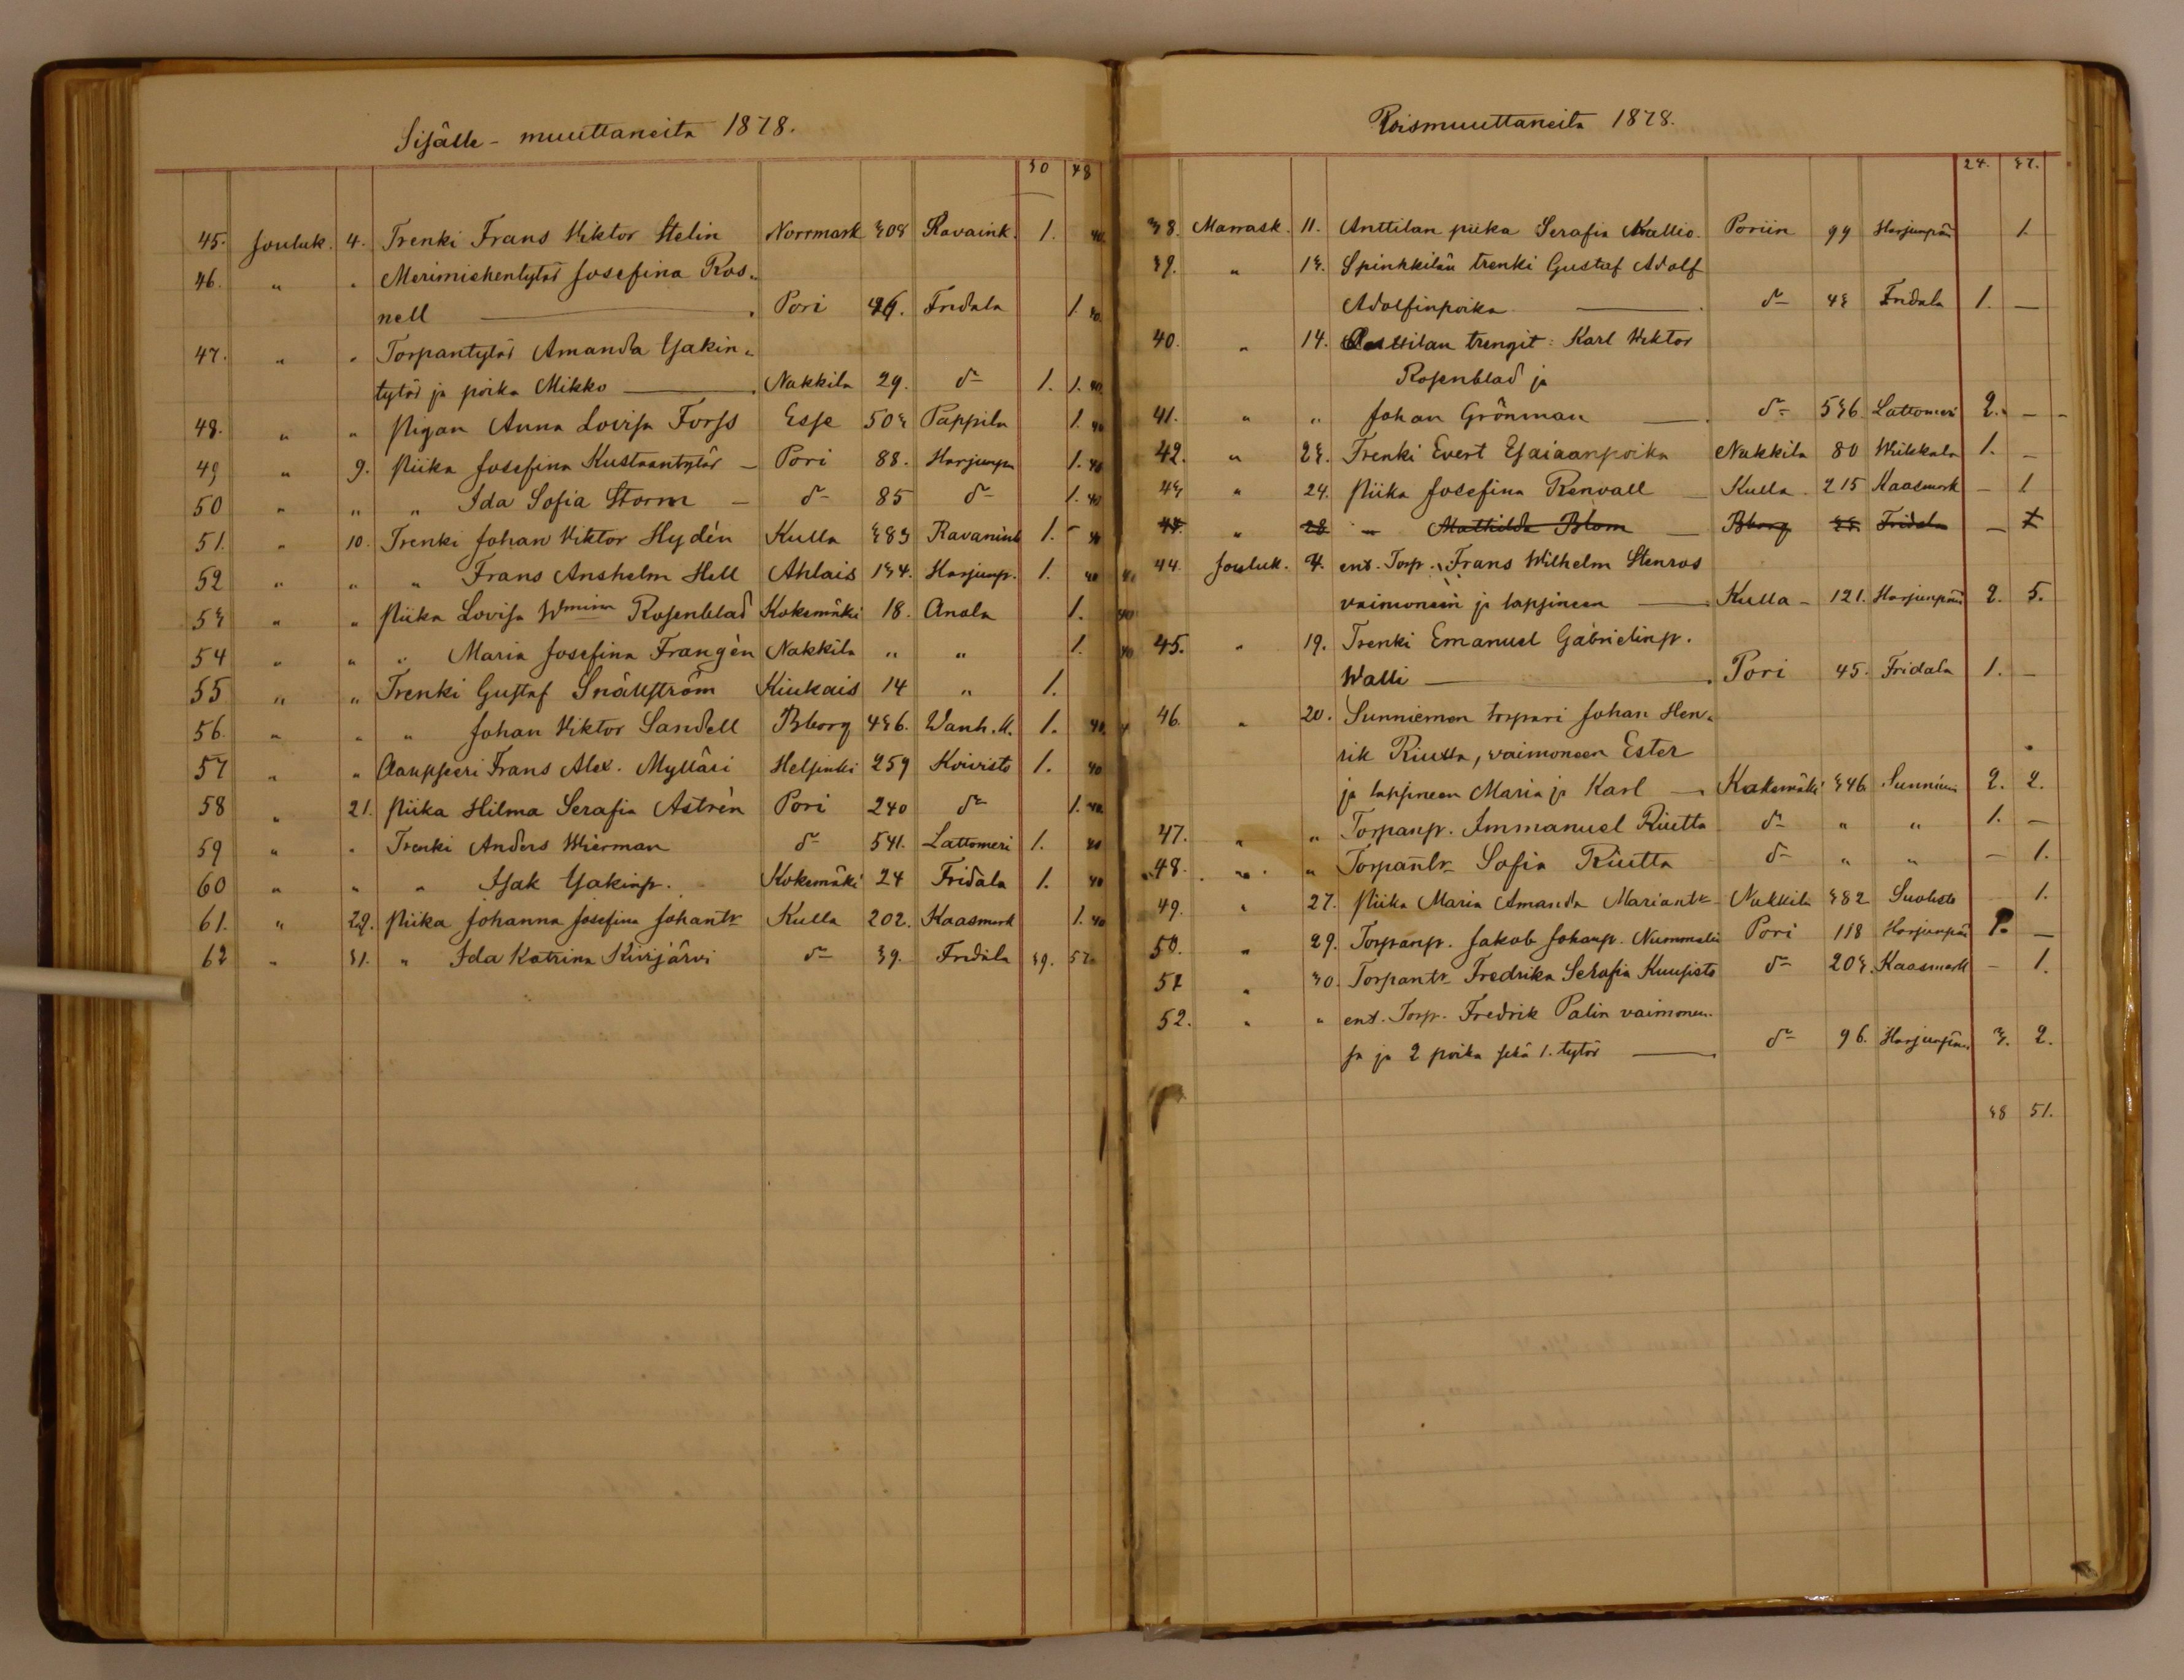 Sisälle-muuttaneita 1878.
30 48
45. Jouluk. 4. Trenki Frans Viktor Stelin Norrmark 308 Ravaink. 1. 40
46. " " Merimiehentytär Josefina Ros-
nell Pori 26. Fridala 1. 40
47. " " Torpantytär Amanda Isakin-
tytär ja poika Mikko Nakkila 29. d:o 1. 1. 40
48. " " Pigan Anna Lovisa Forss Esse 503 Pappila 1. 40
49 " 9. Piika Josefina Kustaantytär - Pori 88. Harjunpä 1. 40
50 " " " Ida Sofia Storm - d:o 85 d:o 1. 40
51. " 10. Trenki Johan Viktor Hydén Kulla 383 Ravanink 1. - 40
52 " " " Frans Anshelm Hell Ahlais 134. Harjunp. 1. 40
53 " " Piika Lovisa Wmina Rosenblad Kokemäki 18. Anola 1. 40
54 " " " Maria Josefina Frangén Nakkila " " 1. 40
55 " " Trenki Gustaf Snällström Kiukais 14 " 1.
56. " " " Johan Viktor Sandell Bborg 436. Wanh.K. 1. 40
57 " " Aaupseri Frans Alex. Mylläri Helsinki 259 Koivisto 1. 40
58 " 21. Piika Hilma Serafia Astrén Pori 240 d:o 1. 40
59 " " Trenki Anders Wierman d:o 541. Lattomeri 1. 40
60 " " " Isak Isakinp. Kokemäki 24 Fridala 1. 40
61. " 29. Piika Johanna Josefina Johantr Kulla 202. Kaasmark 1. 40
62 " 31. " Ida Katrina Kivijärvi d:o 39. Fridala 39. 57
Poismuuttaneita 1878.
24. 37.
38. Marrask. 11. Anttilan piika Serafia Kallio. Poriin 99 Harjunpää 1
39. " 13. Spinkkilän trenki Gustaf Adolf
Adolfinpoika d:o 43 Fridala 1. —
40. " 14. Anttilan trengit: Karl Viktor
Rosenblad ja
41. " " Johan Grönman d:o 536. Lattomeri 2. -
42. " 23. Trenki Evert Esaiaanpoika Nakkila 80 Wiikkala 1. -
43 " 24. Piika Josefina Renvall Kulla 215 Kaasmark - 1
44. " 28 - Mathilda Blom Bborg 33. Fridala - 1
44. Jouluk. 4. ent. Torp. Frans Wilhelm Stenros
vaimoneen ja lapsineen Kulla - 121. Harjunpää 2. 5.
45. " 19. Trenki Emanuel Gabrielinp.
Walli Pori 45. Fridala 1. -
46. " 20. Sunniemen torpari Johan Hen-
rik Riutta, vaimoneen Ester
ja lapsineen Maria ja Karl Kokemäki 346 Sunniem 2. 2.
47. " " Torpanp. Immanuel Riutta d:o " " 1. -
48. " " Torpantr Sofia Riutta d:o " " - 1.
49. " 27. Piika Maria Amanda Mariantr Nakkila 382 Suolisto 1.
50. " 29. Torpanp. Jakob Johanp. Nummelin Pori 118 Harjunpää 1. -
51 " 30. Torpantr Fredrika Serafia Kuusisto d:o 203. Kaasmark - 1.
52. " " ent. Torp. Fredrik Palin vaimonen-
sa ja 2 poika sekä 1. tytär d:o 96. Harjunpää 3. 2.
38 51.